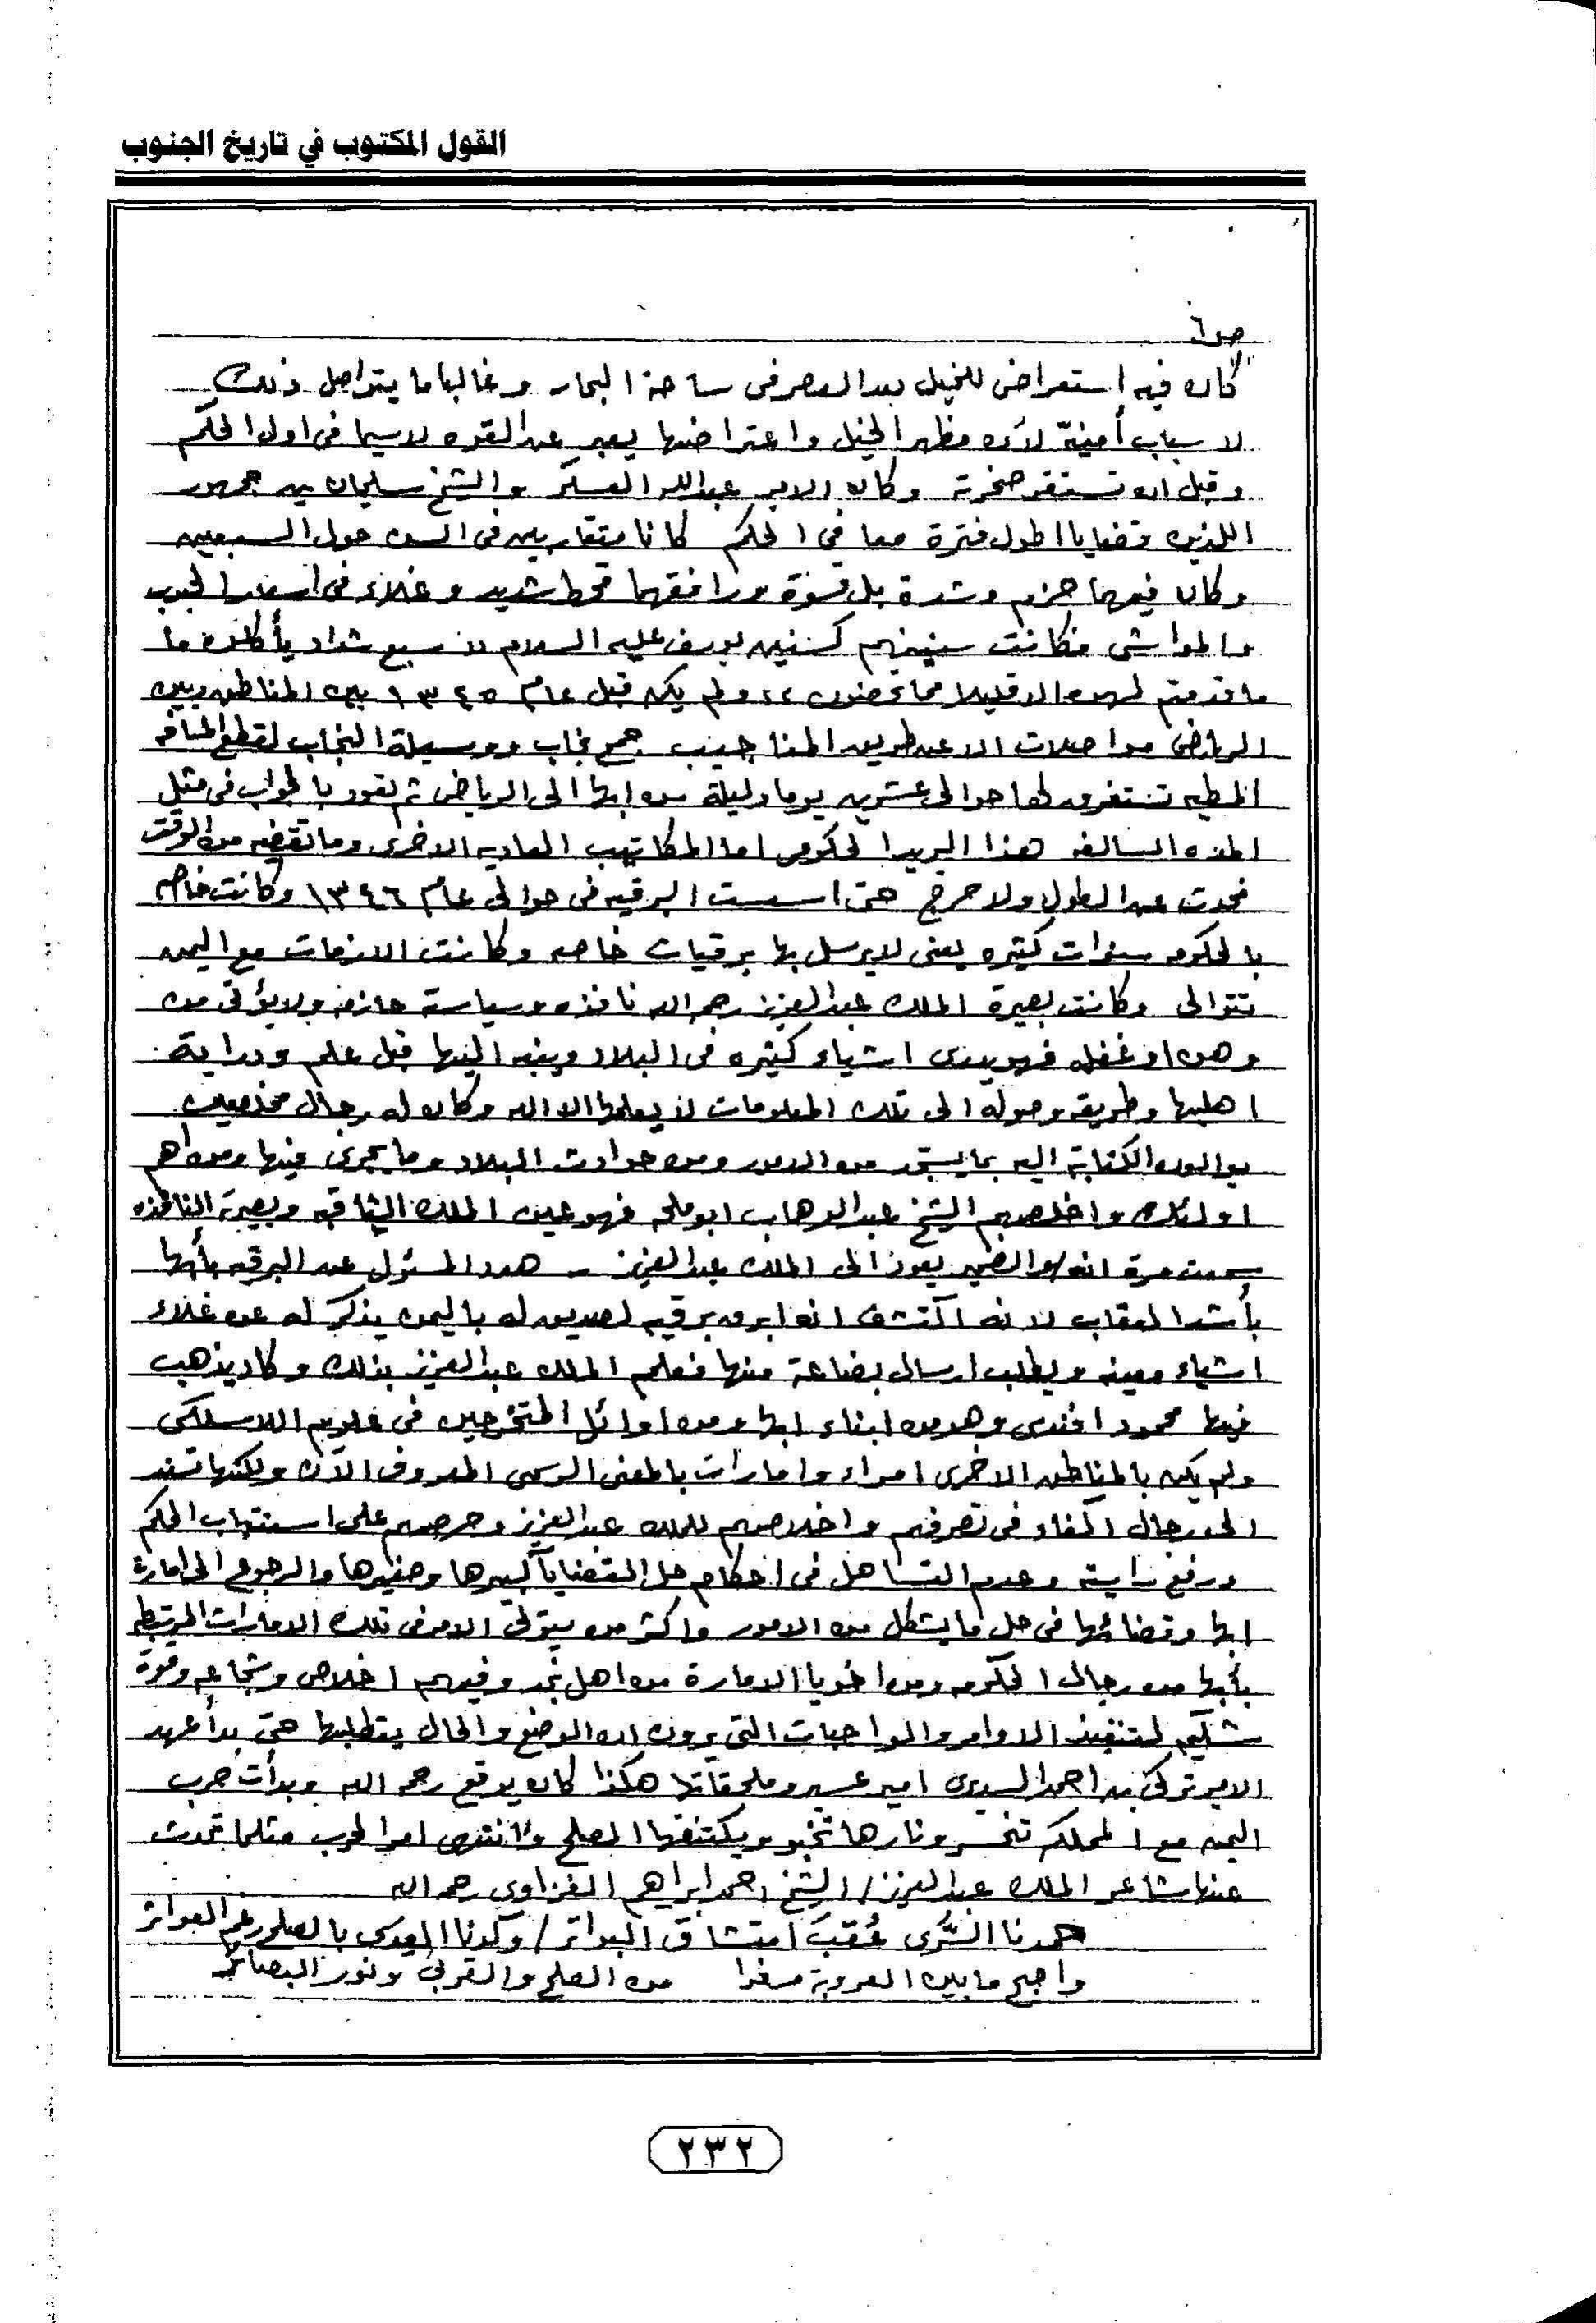 القول المكتوب في تاريخ الجنوب
ص٦
كان فيه استعراض للخيل بعد العصر فى ساحة البحار وغالبا ما يتواصل ذلك
لاسباب أمنية لأن مظهر الخيل واعتراضها يعبر عن القوه لاسيما فى اول الحكم
وقبل ان تستقر صخرته وكان الامير عبدالله العسكر والشيخ سليمان بن جمهور
اللذين قضايا اطول فترة معا في الحكم كانا متقاربين فى السن حول السبعين
وكان فيهما حزم وشدة بل قسوة ورافقهما قحط شديد وغلاء فى اسعار الحبوب
والمواشى فكانت سنينهم كسنين يوسف عليه السلام سبع شداد يأكلون ما
ما قدمتم لهن الا قليلا مما تحصنون ،، ولم يكن قبل عام ١٣٤٥ بين المناطق وبين
الرياض مواصلات الا عن طريق المناجيب جمع نجاب ووسيلة النجاب لقطع المسافه
المطيه تستغرق لها حوالى عشرين يوما وليلة من ابها الى الرياض ثم تعود بالجواب فى مثل
المده السالفه هذا البريد الحكومى اما المكاتيب العاديه الاخرى وما تقضيه من الوقت
فحدث عن الطول ولا حرج حتى اسست البرقيه فى حوالى عام ١٣٤٦ وكانت خاصه
بالحكومه سنوات كثيره يعنى لا يرسل بها برقيات خاصه وكانت الازمات مع اليمن
تتوالى وكانت بصيرة الملك عبدالعزيز رحمه الله نافذه وسياسته حازمه ولا يؤتى من
وهن او غفله فهو يدرى اشياء كثيره فى البلاد وينبه اليها قبل علم ودراية
اهلها وطريقه وصوله الى تلك المعلومات لا يعلمها الا الله وكان له رجال مخلصين
يوالون الكتابة اليه بما يستجد من الامور ومن حوادث البلاد وما يجرى فيها ومن اهم
اولئك واخلصهم الشيخ عبدالوهاب ابوملحه فهو عين الملك الثاقبه وبصيرته النافذه
سمعت مرة انه/والضمير يعود الى الملك عبدالعزيز - هدد المسئول عن البرقيه بأبها
بأشد العقاب لانه اكتشف انه ابرق برقيه لصديق له باليمن يذكر له عن غلاء
اشياء معينه ويطلب ارسال بضاعة منها فعلم الملك عبدالعزيز بذلك وكاد يذهب
فيها محمود افندى وهو من ابناء ابها ومن اوائل المتخرجين فى علوم اللاسلكى
ولم يكن بالمناطق الاخرى امراء وامارات بالمعنى الرسمى المعروف الآن ولكنها تسند
الى رجال اكفاء فى تصرفهم واخلاصهم للملك عبدالعزيز وحرصهم على استتباب الحكم
ورفع رايته وعدم التساهل فى احكام حل القضايا كبيرها وصغيرها والرجوع الى امارة
ابها وقضائها فى حل ما يشكل من الامور واكثر من يتولى الامر فى تلك الامارات المرتبطه
بأبها من رجال الحكومه ومن اخويا الامارة من اهل نجد وفيهم اخلاص وشجاعه وقوة
شكيمه لتنفيذ الاوامر والواجبات التى يرون ان الوضع والحال يتطلبها حتى بدأ عهد
الامير تركى بن احمد السديرى امير عسير وملحقاتها هكذا كان يوقع رحمه الله وبدأت حرب
اليمن مع المملكه تنحسر ونارها تخبو ويكتنفها الصلح وانتهى امر الحرب مثلما تحدث
عنها شاعر الملك عبدالعزيز/ الشيخ احمد ابراهيم الغزاوى رحمه الله
حمدنا السُّرى عُقبَ امتشاق البواتر/ وكدنا العدى بالصلح رغم الدوائر
واصبح ما بين العروبة مسفرا من الصلح والقربى ونور البصائر
٢٣٢